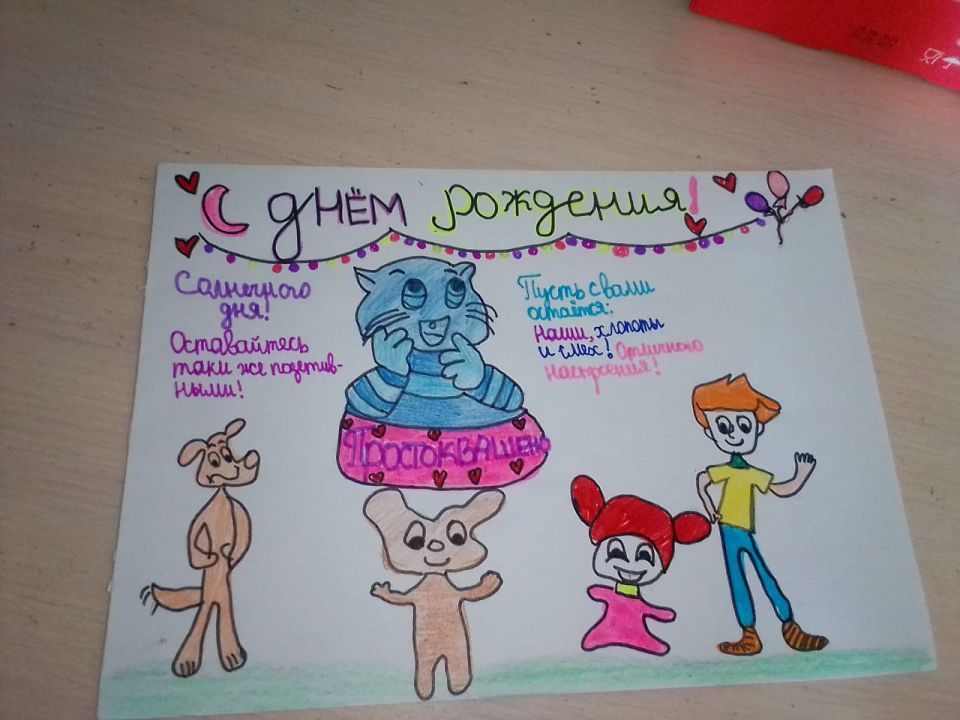 С днём рождения!
Солнечного
дня!
Оставайтесь
таки же позетив-
ными!
Пусть с вами
остаётся:
Наши, хлопоты
и смех! Отличного
настроения!
Простоквашено